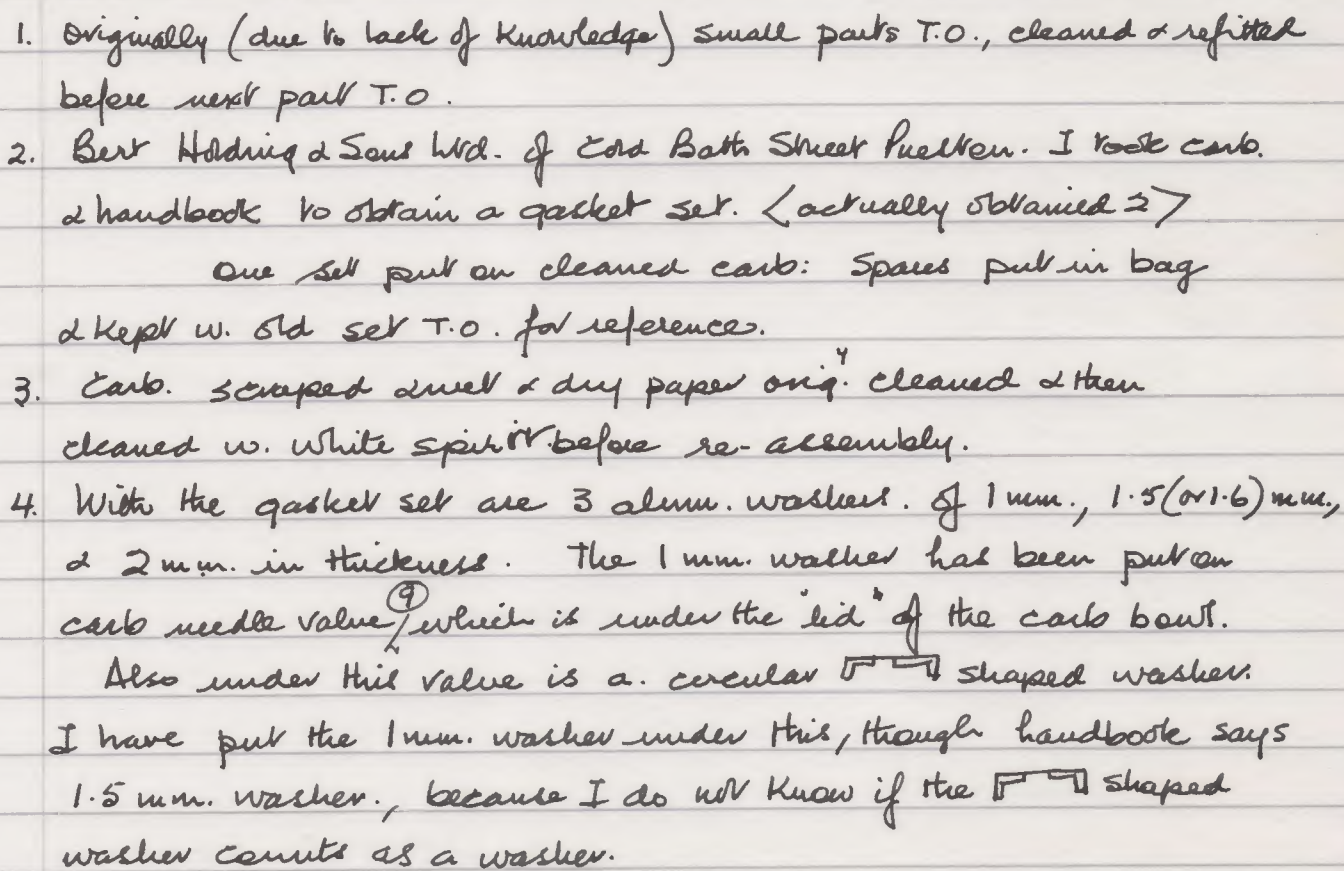 1. Originally (due to lack of knowledge) small parts T.O., cleaned & refitted
before next part T.O.
2. Bert Holding & Sons Ltd. of Cold Bath Street Preston. I took carb.
& handbook to obtain a gasket set. <actually obtained 2>
One set put on cleaned carb: Spares put in bag
& kept w. old set T.O. for reference.
3. Carb. scraped & wet & dry paper orig.y cleaned & then
cleaned w. white spirit before re-assembly.
4. With the gasket set are 3 alum. washers. of 1 mm., 1.5 (or 1.6) mm.,
& 2 mm. in thickness. The 1 mm. washer has been put on
carb needle valve, (9) which is under the "lid" of the carb bowl.
Also under this valve is a. circular shaped washer.
I have put the 1 mm. washer under this, though handbook says
1.5 mm. washer., because I do not know if the shaped
washer counts as a washer.